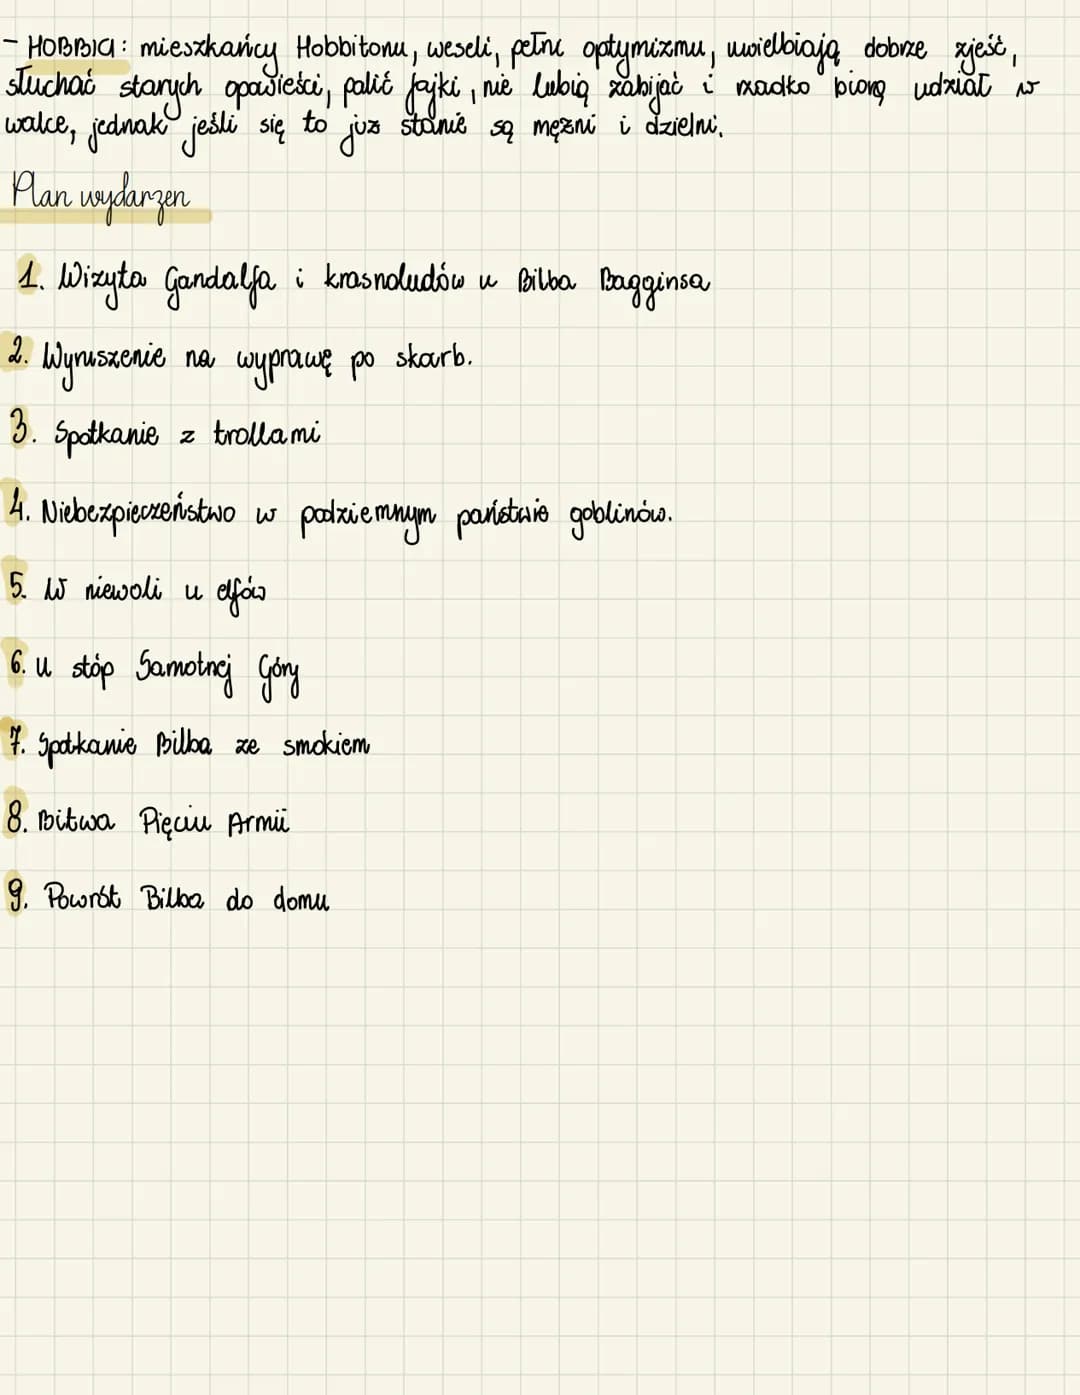 - HOBBICI: mieszkańcy Hobbitonu, weseli, pełni optymizmu, uwielbiają dobrze zjeść,
słuchać starych opowieści, palić fajki, nie lubią zabijać i rzadko biorą udział w
walce, jednak jeśli się to już stanie są mężni i dzielni.
Plan wydarzen
1. Wizyta Gandalfa i krasnoludów u Bilba Bagginsa
2. Wyruszenie na wyprawę po skarb.
3. Spotkanie z trollami
4. Niebezpieczeństwo w podziemnym państwie goblinów.
5. W niewoli u elfów
6. U stóp Samotnej Góry
7. Spotkanie Bilba ze smokiem
8. Bitwa Pięciu Armii
9. Powrót Bilba do domu